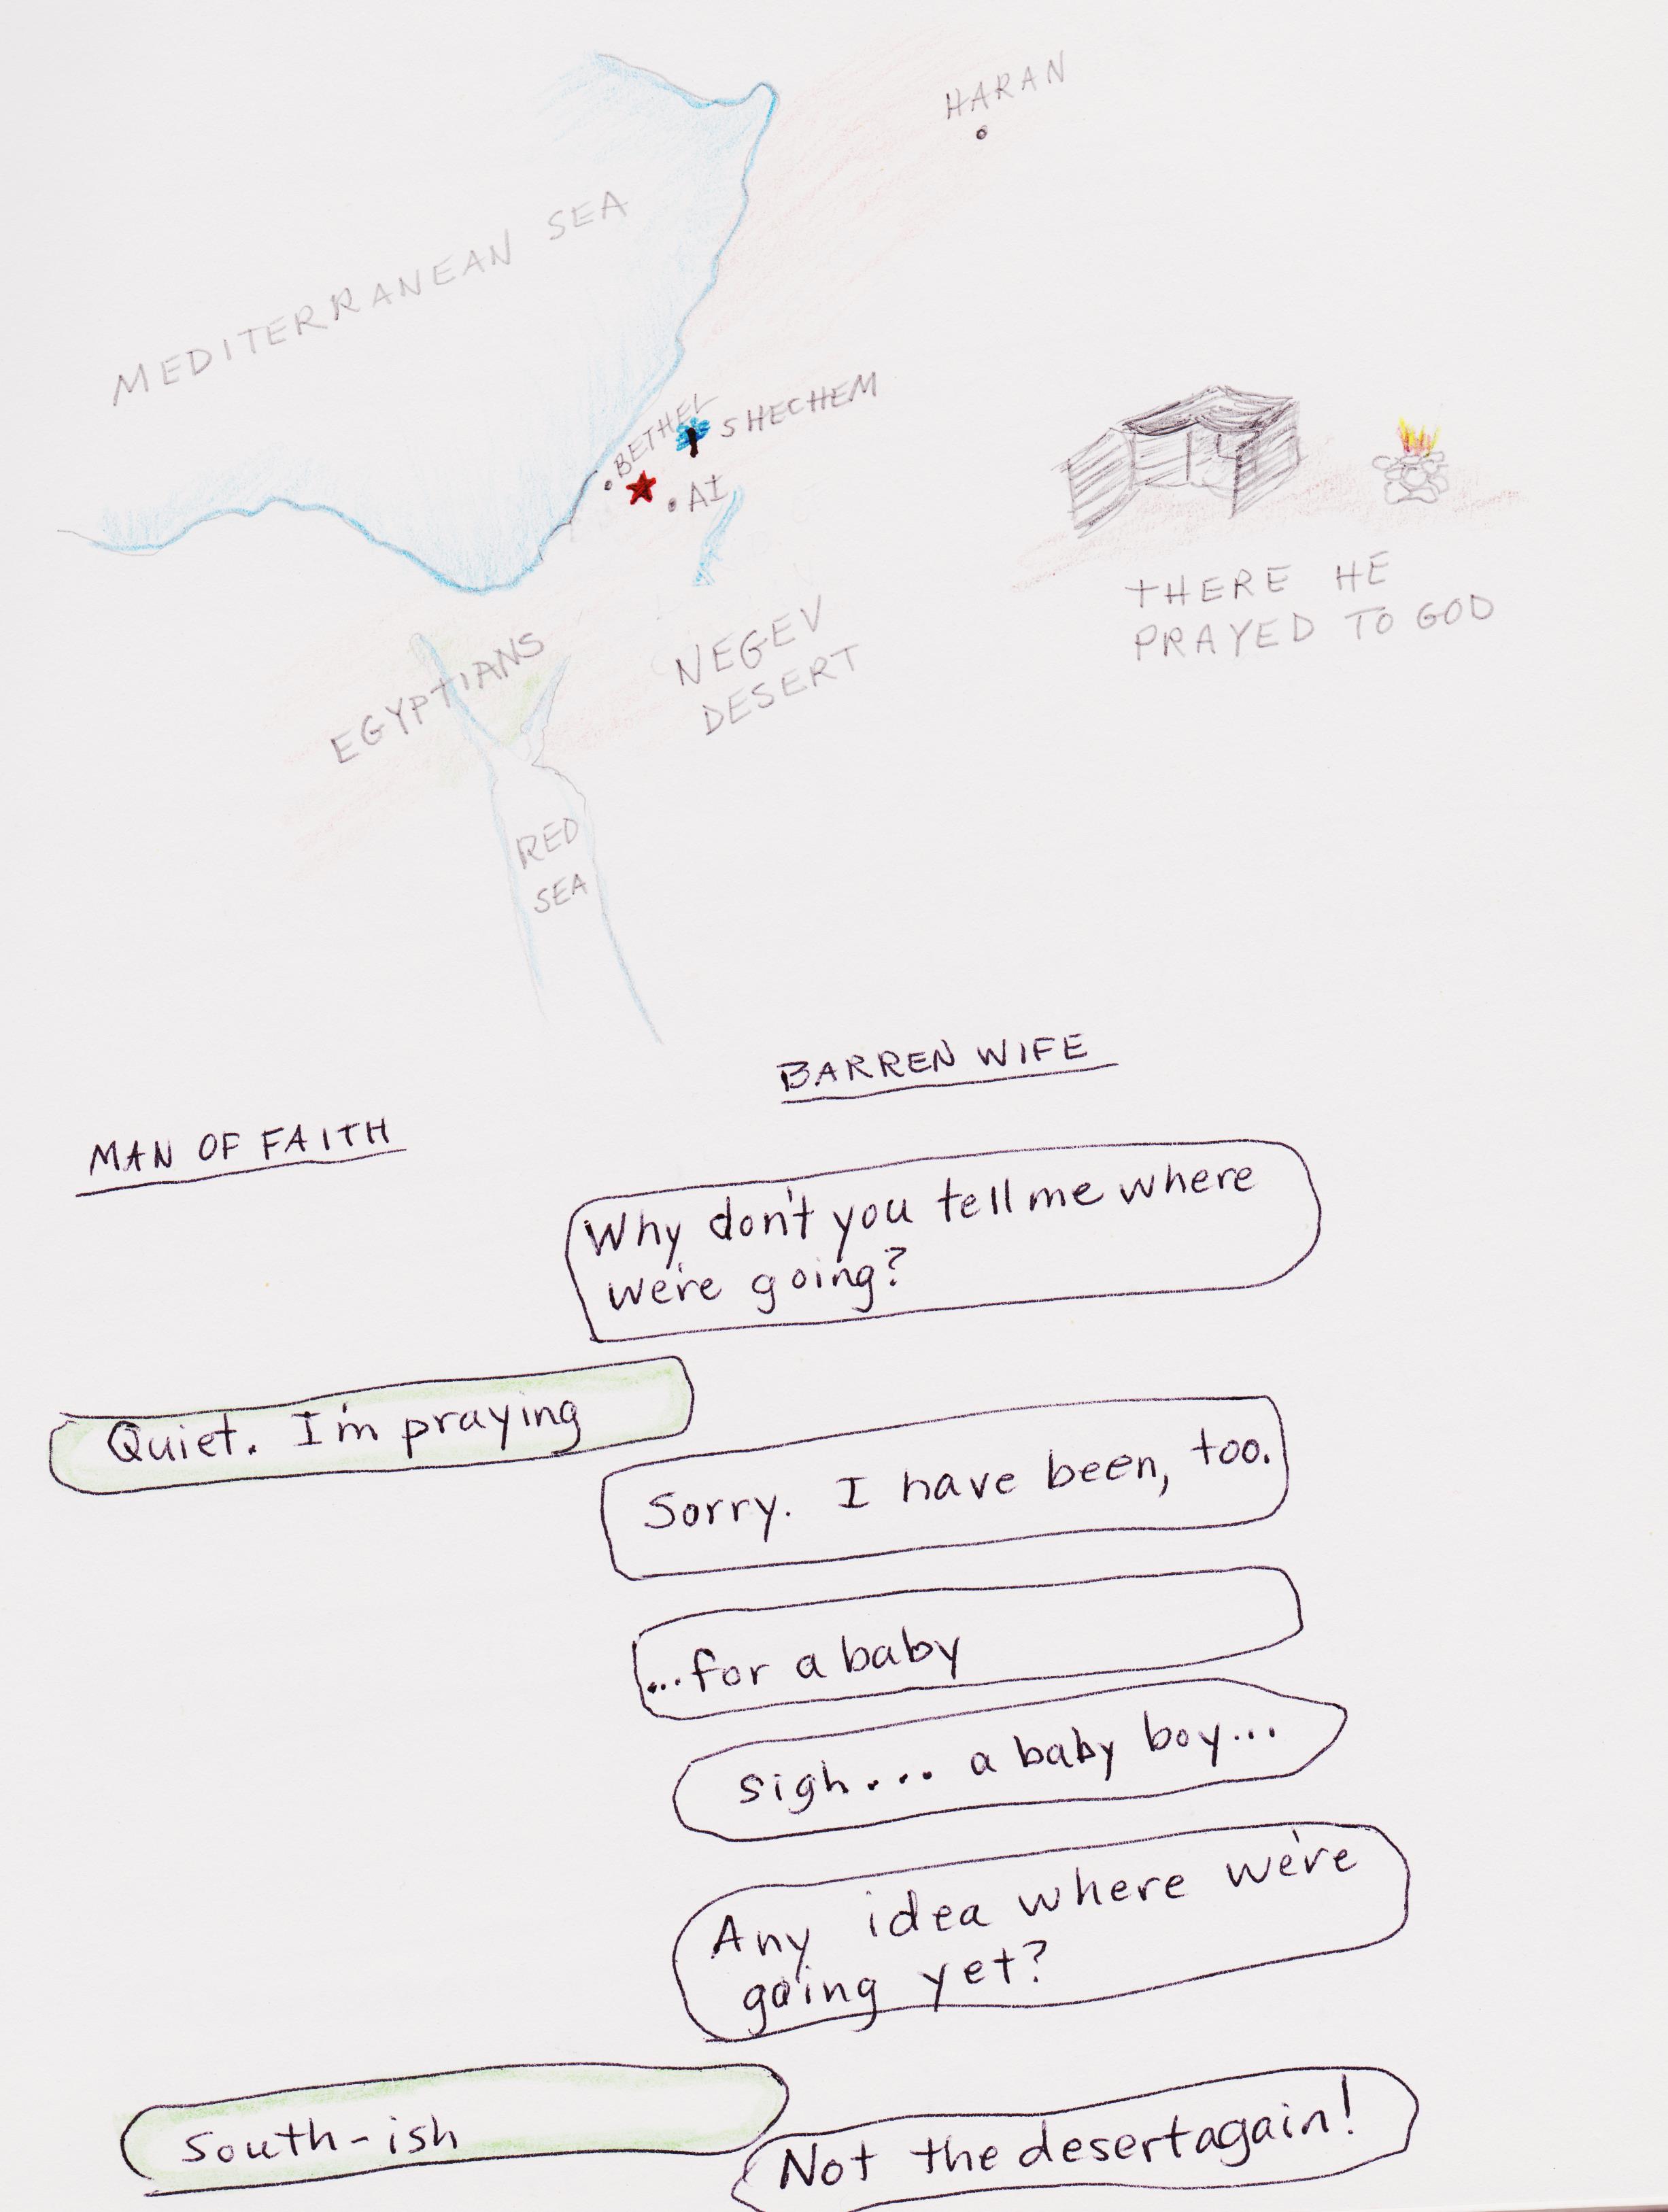 HARAN
MEDITERRANEAN SEA
BETHEL
SHECHEM
AI
THERE HE
PRAYED TO GOD
EGYPTIANS
NEGEV
DESERT
RED
SEA
BARREN WIFE
MAN OF FAITH
Why don't you tell me where
we're going?
Quiet. I'm praying
Sorry. I have been, too.
...for a baby
sigh... a baby boy...
Any idea where we're
going yet?
South-ish
Not the desert again!